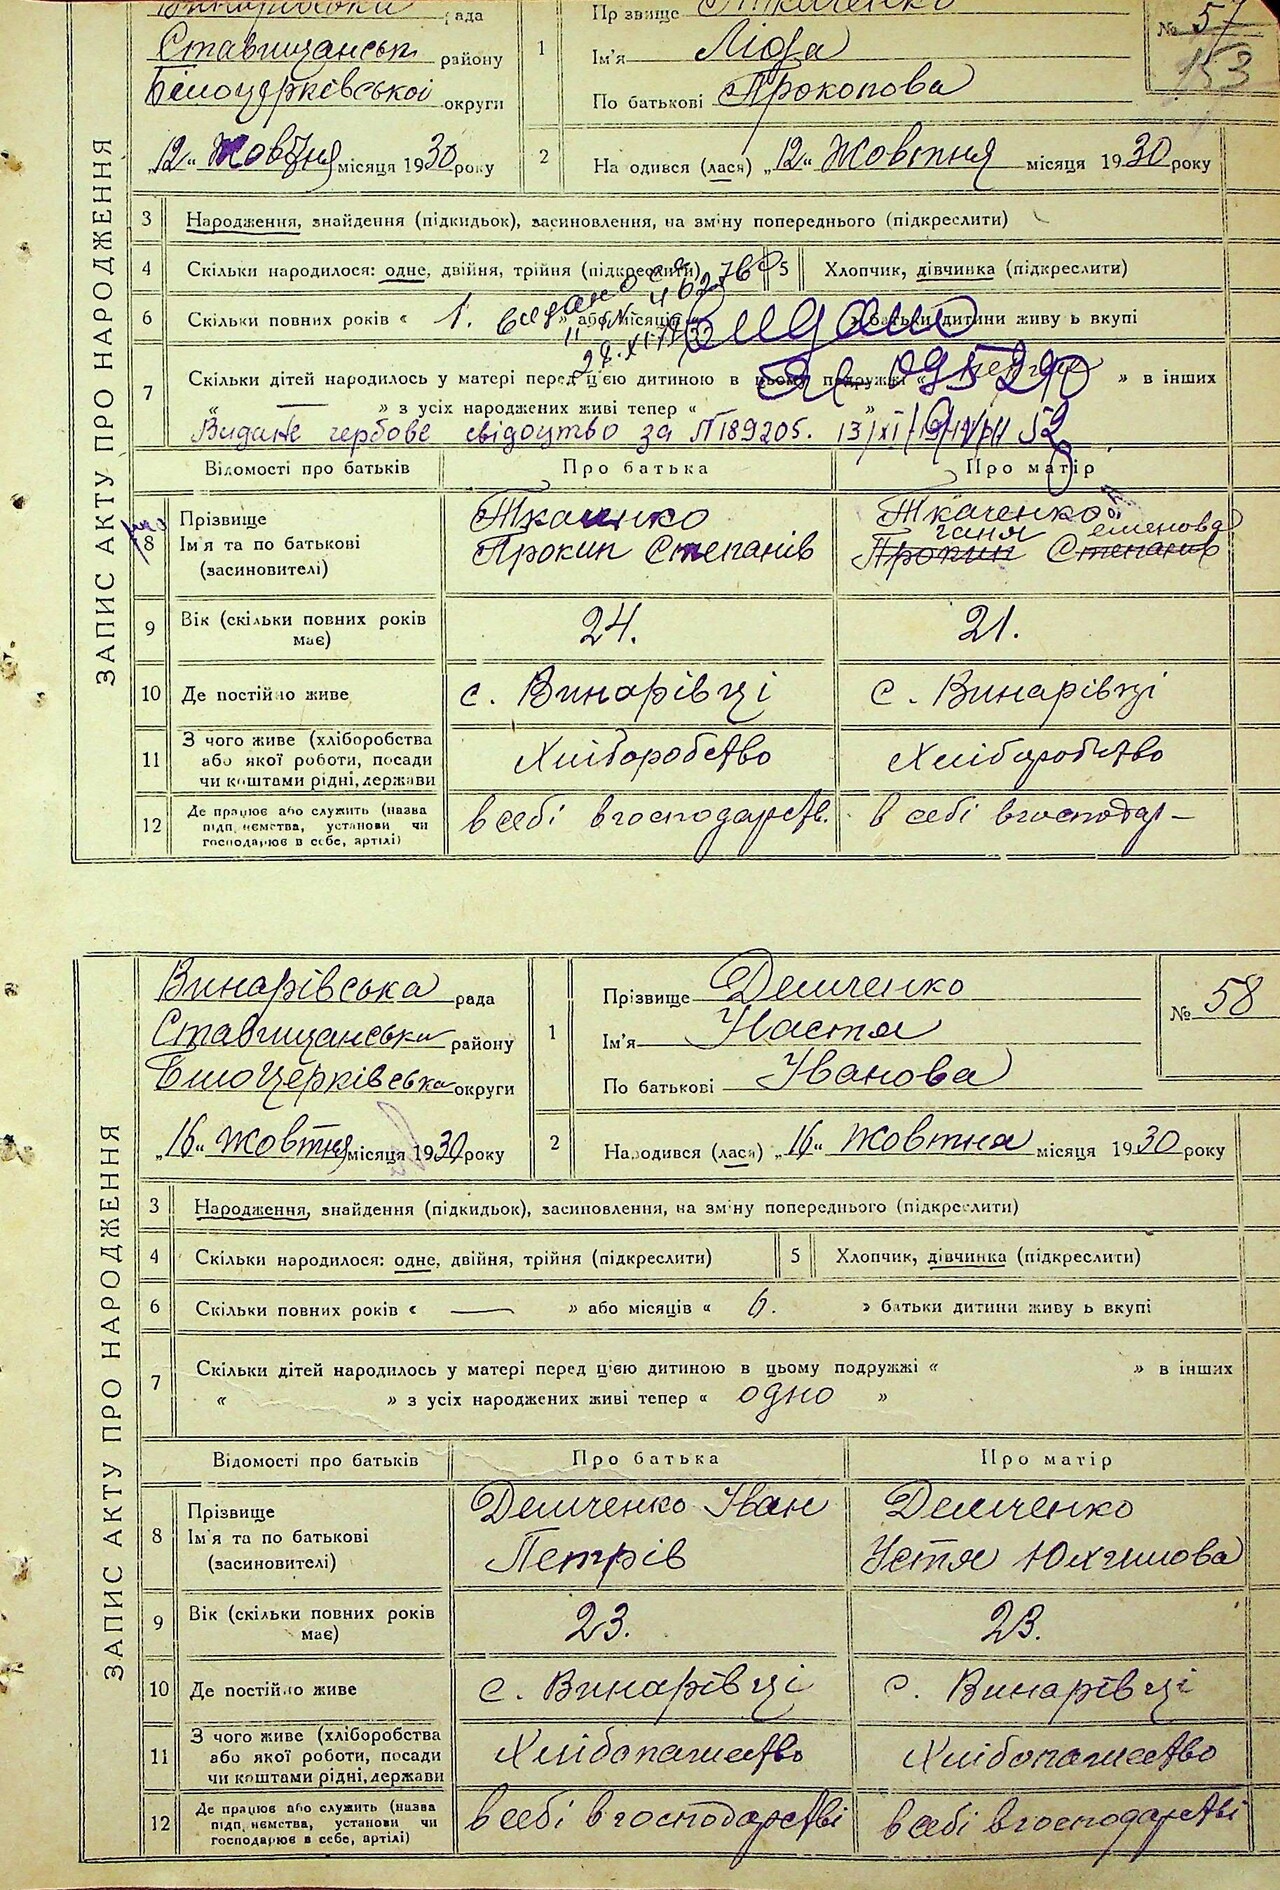 Винарівська рада
Ставищанськ району
Білоцерківської округи
„12" Жовтня місяця 1930 року
1
Прізвище Ткаченко
Ім'я Ліда
По батькові Прокопова
№ 57
153
2 Народився (лася) „12" Жовтня місяця 1930 року
ЗАПИС АКТУ ПРО НАРОДЖЕННЯ
3 Народження, знайдення (підкидьок), засиновлення, на зміну попереднього (підкреслити)
4 Скільки народилося: одне, двійня, трійня (підкреслити) 5 Хлопчик, дівчинка (підкреслити)
6 Скільки повних років « 1. » або місяців « » батьки дитини живуть вкупі
видано
7 Скільки дітей народилось у матері перед ц'єю дитиною в цьому подружжі « » в інших
« — » з усіх народжених живі тепер « »
Видане гербове свідоцтво за №189205. 13/XI
Відомості про батьків Про батька Про матір
8 Прізвище Ткаченко Ткаченко
Ганя Семенова
Ім'я та по батькові Прокип Степанів Прокип Степанів
(засиновителі)
9 Вік (скільки повних років має) 24. 21.
10 Де постійно живе с. Винарівці с. Винарівці
11 З чого живе (хліборобства
або якої роботи, посади Хліборобство Хліборобство
чи коштами рідні, держави
12 Де працює або служить (назва
підприємства, установи чи в себі в господарств. в себі в господар–
господарює в себе, артілі)
Винарівська рада
Ставищанськи району
Білоцерківська округи
„16" Жовтня місяця 1930 року
1
Прізвище Демченко
Ім'я Настя
По батькові Іванова
№ 58
2 Народився (лася) „16" Жовтня місяця 1930 року
ЗАПИС АКТУ ПРО НАРОДЖЕННЯ
3 Народження, знайдення (підкидьок), засиновлення, на зміну попереднього (підкреслити)
4 Скільки народилося: одне, двійня, трійня (підкреслити) 5 Хлопчик, дівчинка (підкреслити)
6 Скільки повних років « — » або місяців « 6. » батьки дитини живуть вкупі
7 Скільки дітей народилось у матері перед ц'єю дитиною в цьому подружжі « » в інших
« » з усіх народжених живі тепер « одно »
Відомості про батьків Про батька Про матір
8 Прізвище Демченко Іван Демченко
Ім'я та по батькові Петрів Устя Юхимова
(засиновителі)
9 Вік (скільки повних років має) 23. 23.
10 Де постійно живе с. Винарівці с. Винарівці
11 З чого живе (хліборобства
або якої роботи, посади Хлібопашество Хлібопашество
чи коштами рідні, держави
12 Де працює або служить (назва
підприємства, установи чи в себі в господарстві в себі в господарстві
господарює в себе, артілі)